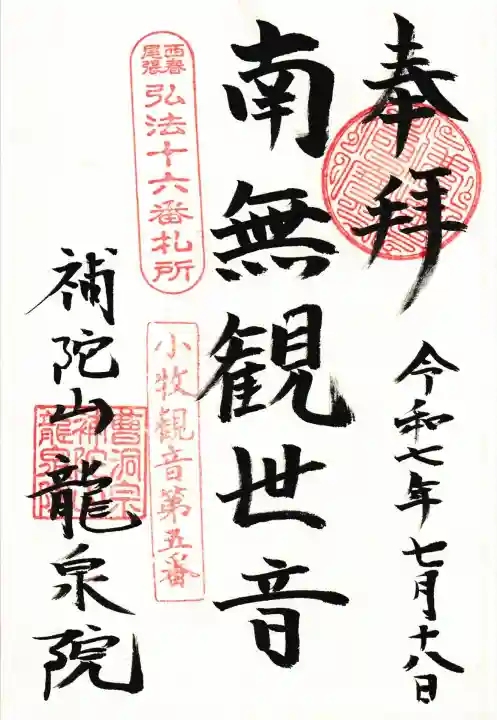 奉拝
令和七年七月十八日
南無観世音
西春
尾張
弘法十六番札所
小牧観音第五番
補陀山龍泉院
曹洞宗
補陀山
龍泉院